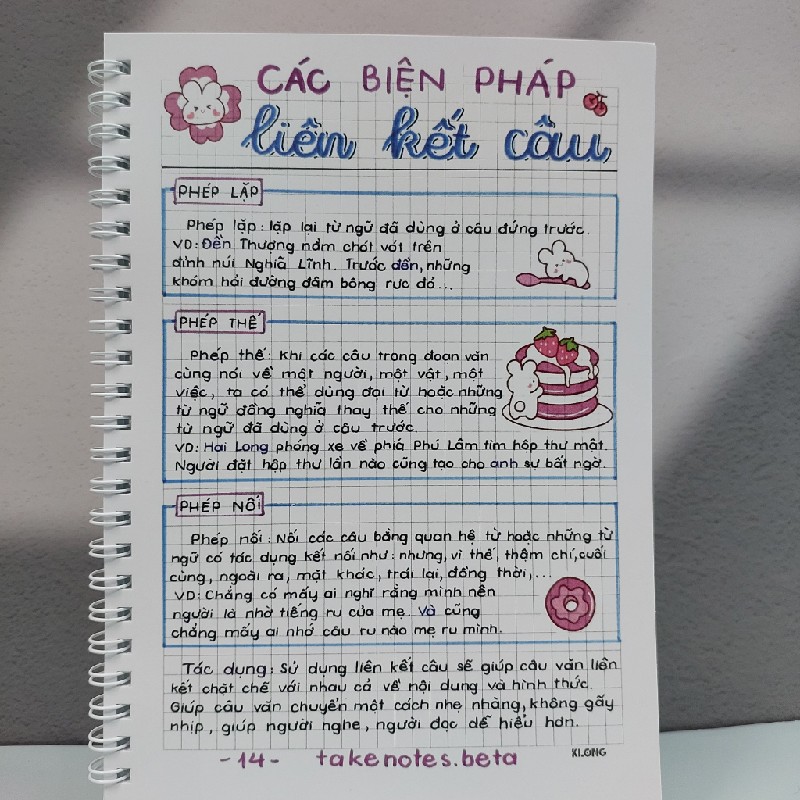 CÁC BIỆN PHÁP
liên kết câu
PHÉP LẶP
Phép lặp: lặp lại từ ngữ đã dùng ở câu đứng trước.
VD: Đền Thượng nằm chót vót trên
đỉnh núi Nghĩa Lĩnh. Trước đền, những
khóm hải đường đâm bông rực đỏ...
PHÉP THẾ
Phép thế: Khi các câu trong đoạn văn
cùng nói về một người, một vật, một
việc, ta có thể dùng đại từ hoặc những
từ ngữ đồng nghĩa thay thế cho những
từ ngữ đã dùng ở câu trước.
VD: Hai Long phóng xe về phía Phú Lâm tìm hộp thư mật.
Người đặt hộp thư lần nào cũng tạo cho anh sự bất ngờ.
PHÉP NỐI
Phép nối: Nối các câu bằng quan hệ từ hoặc những từ
ngữ có tác dụng kết nối như: nhưng, vì thế, thậm chí, cuối
cùng, ngoài ra, mặt khác, trái lại, đồng thời,...
VD: Chẳng có mấy ai nghĩ rằng mình nên
người là nhờ tiếng ru của mẹ. Và cũng
chẳng mấy ai nhớ câu ru nào mẹ ru mình.
Tác dụng: Sử dụng liên kết câu sẽ giúp câu văn liên
kết chặt chẽ với nhau cả về nội dung và hình thức.
Giúp câu văn chuyển một cách nhẹ nhàng, không gãy
nhịp, giúp người nghe, người đọc dễ hiểu hơn.
-14- takenotes.beta
KLONG